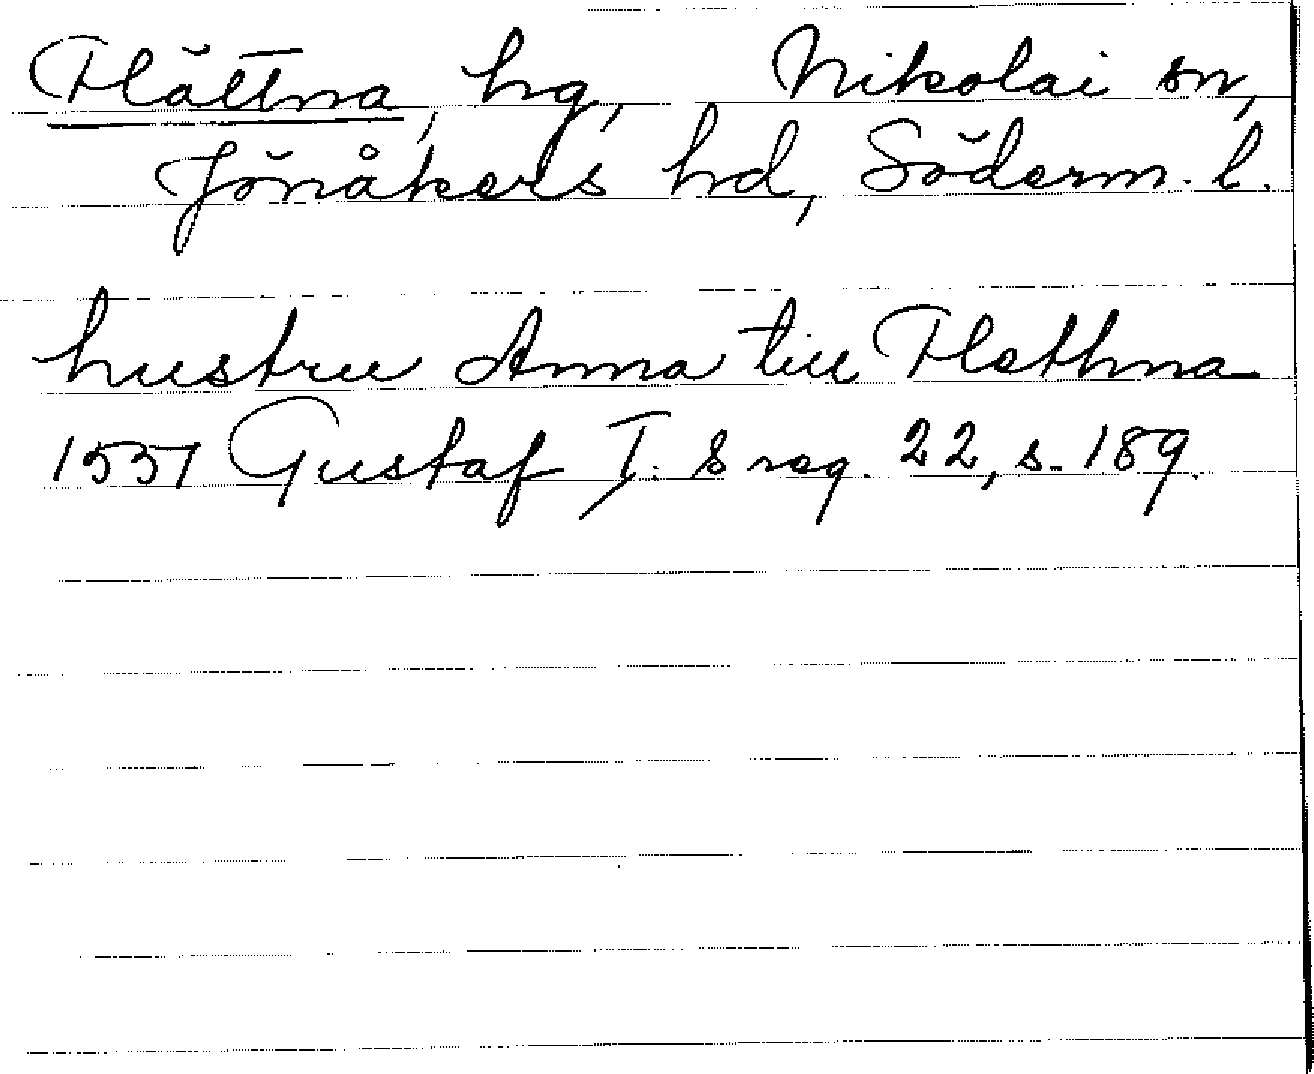 Flättna, hg, Nikolai sn,
Jönåkers hd, Söderm. l.
hustru Anna till Flethna
1551 Gustaf I:s reg. 22, s. 189.